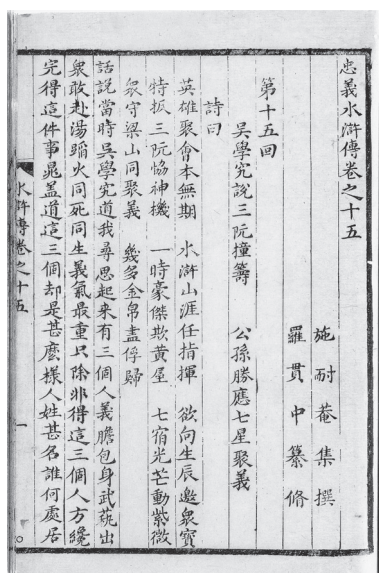 忠義水滸傳卷之十五
施耐菴集撰
羅貫中纂脩
第十五回
吳學究說三阮撞籌　公孫勝應七星聚義
詩曰
英雄聚會本無期　水滸山涯任指揮　欲向生辰邀衆寳
特扳三阮恊神機　一時豪傑欺黃屋　七宿光芒動紫微
衆守梁山同聚義　幾多金帛盡俘歸
話說當時吳學究道我尋思起來有三個人義膽包身武藝出
衆敢赴湯蹈火同死同生義氣最重只除非得這三個人方纔
完得這件事晁盖道這三個却是甚麽樣人姓甚名誰何處居
水滸傳卷之十五
一